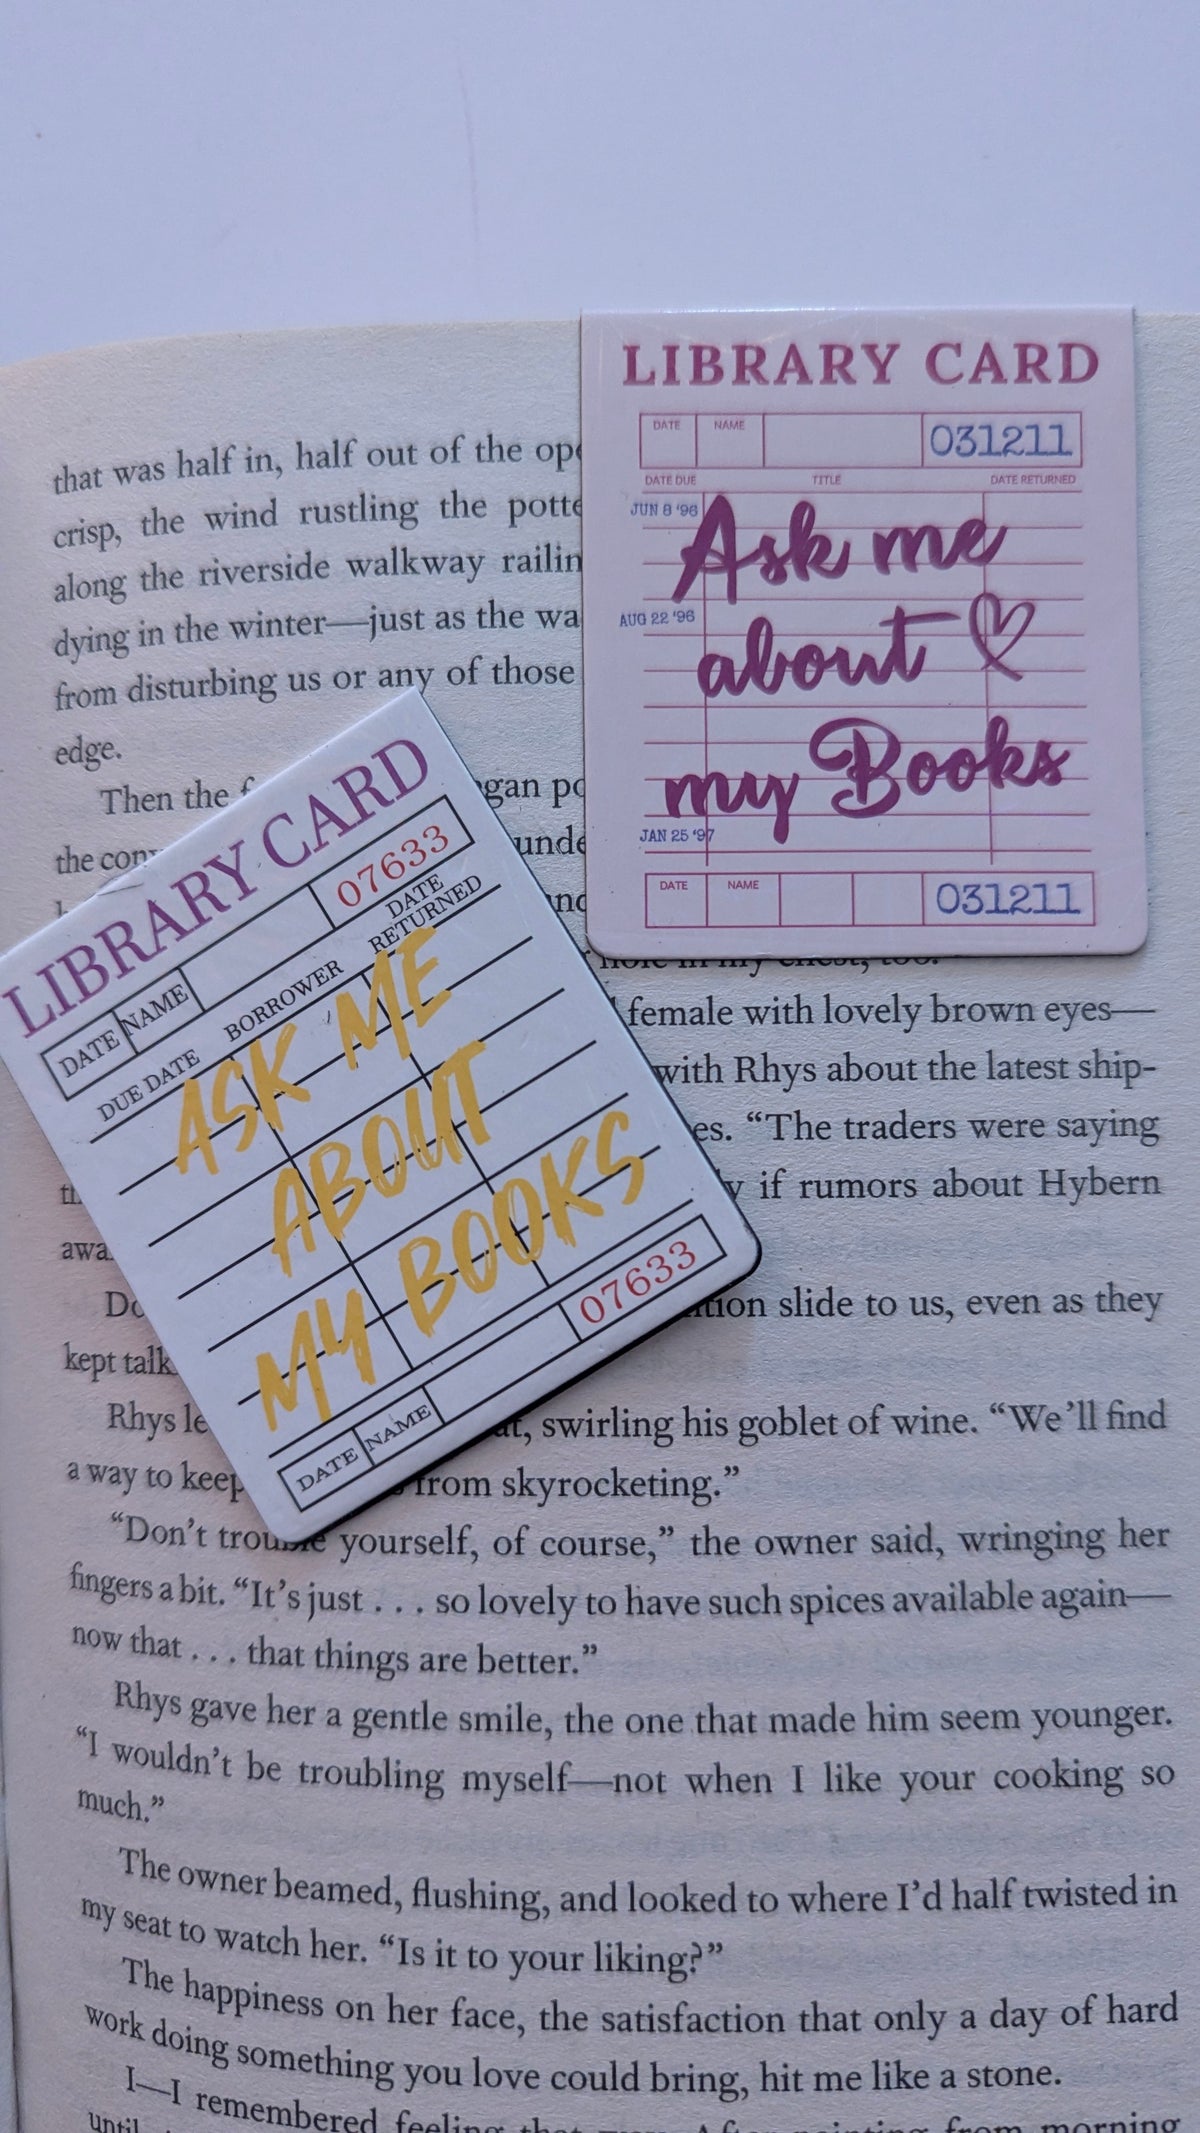 LIBRARY CARD
DATE NAME 031211
DATE DUE TITLE DATE RETURNED
JUN 8 '96
Ask me
AUG 22 '96
about
my Books
JAN 25 '97
DATE NAME 031211
LIBRARY CARD
DATE NAME 07633
DUE DATE BORROWER DATE RETURNED
ASK ME
ABOUT
MY BOOKS
DATE NAME 07633
that was half in, half out of the
crisp, the wind rustling the
along the riverside walkway
dying in the winter—just as the
from disturbing us or any of those
edge.
Then the
the
female with lovely brown eyes—
with Rhys about the latest ship-
“The traders were saying
if rumors about Hybern
slide to us, even as they
kept
Rhys swirling his goblet of wine. “We’ll find
a way to keep from skyrocketing.”
“Don’t trouble yourself, of course,” the owner said, wringing her
fingers a bit. “It’s just . . . so lovely to have such spices available again—
now that . . . that things are better.”
Rhys gave her a gentle smile, the one that made him seem younger.
“I wouldn’t be troubling myself—not when I like your cooking so
much.”
The owner beamed, flushing, and looked to where I’d half twisted in
my seat to watch her. “Is it to your liking?”
The happiness on her face, the satisfaction that only a day of hard
work doing something you love could bring, hit me like a stone.
I—I remembered feeling that way. After painting from morning
until